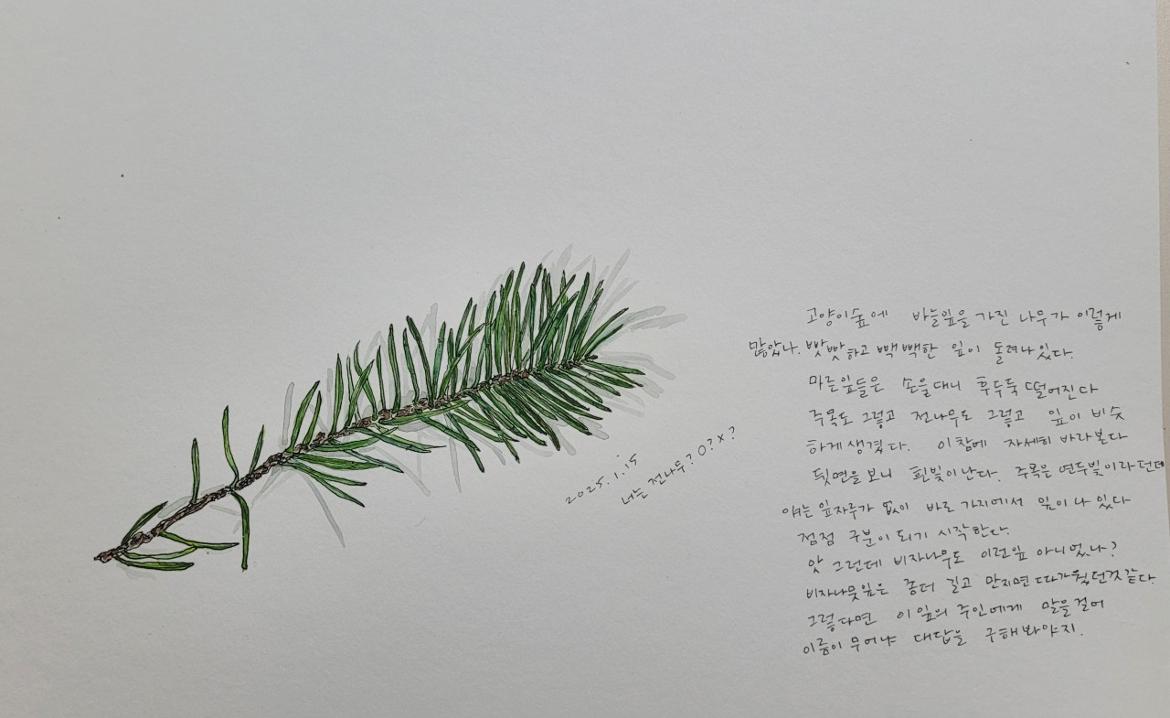 2025.1.15
너는 전나무? O? X?
고양이숲에 바늘잎을 가진 나무가 이렇게
많았나. 빳빳하고 빽빽한 잎이 돌려나있다.
마른잎들은 손을대니 후두둑 떨어진다
주목도 그렇고 전나무도 그렇고 잎이 비슷
하게생겼다. 이참에 자세히 바라본다
뒷면을 보니 흰빛이난다. 주목은 연두빛이라던데
얘는 잎자루가 없이 바로 가지에서 잎이 나 있다
점점 구분이 되기 시작한다.
앗 그런데 비자나무도 이런잎 아니었나?
비자나뭇잎은 좀더 길고 만지면 따가웠던것같다.
그렇다면 이 잎의 주인에게 말을걸어
이름이 무어냐 대답을 구해봐야지.